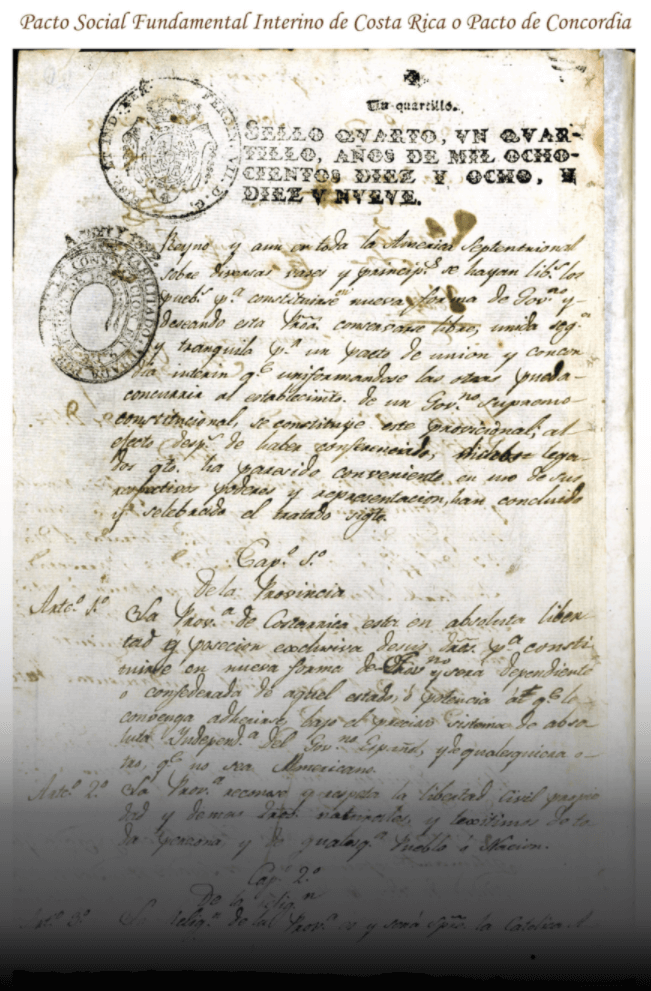 Pacto Social Fundamental Interino de Costa Rica o Pacto de Concordia
Un quartillo.
SELLO QVARTO, VN QVAR-
TILLO, AÑOS DE MIL OCHO-
CIENTOS DIEZ Y OCHO, Y
DIEZ Y NVEVE.
Reyno y aun en toda la America Septentrional
sobre diversas vases y princip.s se hayan lib.s los
pueb.s p.a constituirse en nueva forma de Gov.no y
deseando esta Prov.a conservarse libre, unida seg.a
y tranquila p.r un pacto de union y concor
dia interin q.e uniformandose las otras pueda
concurrir al establecim.to de un Gov.no Supremo
constitucional, se constituye este provicional; al
efecto desp.s de haber conferenciado, lega
dos q.to ha paresido conveniente en uso de sus
respectivos poderes y representacion, han concluido
y selebrado el tratado sig.te
Cap.o 1.o
De la Provincia
Artc.o 1.o La Prov.a de Costarrica esta en absoluta liber
tad y posecion exclusiva de sus dros. p.a consti
tuirse en nueva forma de Gov.no y sera dependiente
o confederada de aquel estado, o potencia á q.e le
convenga adherirse, bajo el preciso sistema de abso
luta Independ.a del Gov.no Español, y de qualesquiera o-
tro, q.e no sea Americano.
Artc.o 2.o La Prov.a reconose y respeta la libertad civil propie
dad y demas dros. naturales, y lexitimos de to
da persona y de qualesq.a Pueblo ó Nacion.
Cap.o 2.o
De la Relig.n
Art.o 3.o La Relig.n de la Prov.a es y será spre. la Catolica A